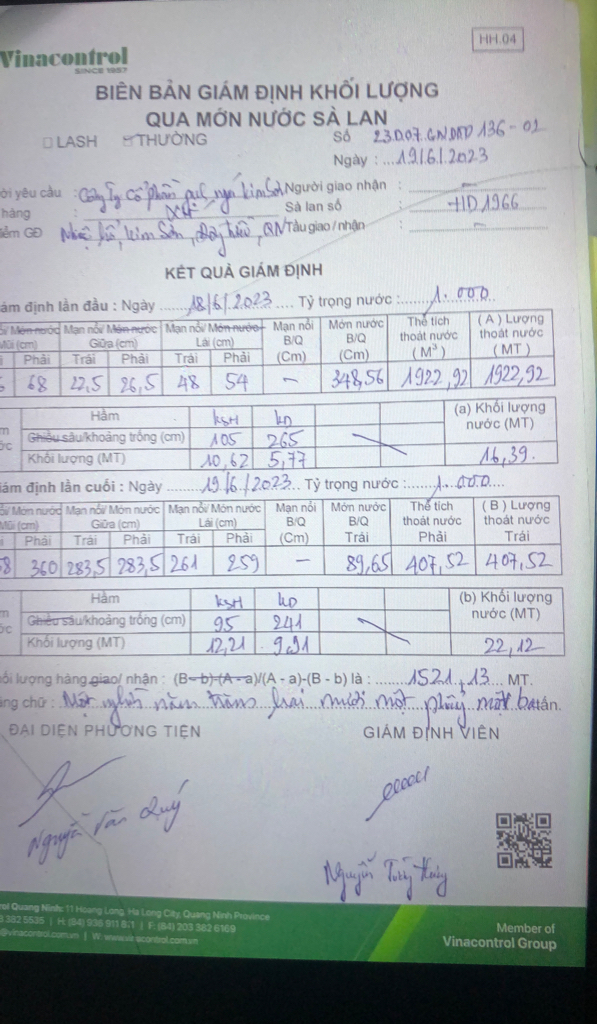 HH.04
Vinacontrol
SINCE 1957
BIÊN BẢN GIÁM ĐỊNH KHỐI LƯỢNG
QUA MỚN NƯỚC SÀ LAN
LASH THƯỜNG
Số 23D07.GNĐ 136-01
Ngày : 19/6/2023
ời yêu cầu : Công Ty Cổ phần Kim Sơn Người giao nhận : –
hàng : XHF Sà lan số : HD1966
iểm GĐ Kim Sơn, Đông Triều, QN Tầu giao/nhận : –
KẾT QUẢ GIÁM ĐỊNH
iám định lần đầu : Ngày 18/6/2023 Tỷ trọng nước : 1.000
ổi/Món nước Mạn nổi/Món nước Mạn nổi/Món nước Mạn nổi Món nước Thể tích (A) Lượng
Mũi (cm) Giữa (cm) Lái (cm) B/Q B/Q thoát nước thoát nước
i Phải Trái Phải Trái Phải (Cm) (Cm) (M³) (MT)
68 27,5 26,5 48 54 – 348,56 1922,92 1922,92
Hầm KSH KD (a) Khối lượng
Chiều sâu/khoảng trống (cm) 105 265 nước (MT)
Khối lượng (MT) 10,62 5,77 16,39
iám định lần cuối : Ngày 19/6/2023 Tỷ trọng nước : 1.000
ổi/Món nước Mạn nổi/Món nước Mạn nổi/Món nước Mạn nổi Món nước Thể tích (B) Lượng
Mũi (cm) Giữa (cm) Lái (cm) B/Q B/Q thoát nước thoát nước
i Phải Trái Phải Trái Phải (Cm) Trái Phải Trái
8 360 283,5 283,5 261 259 – 89,65 407,52 407,52
Hầm KSH KD (b) Khối lượng
Chiều sâu/khoảng trống (cm) 95 241 nước (MT)
Khối lượng (MT) 12,21 9,91 22,12
ối lượng hàng giao/ nhận : (B - b)-(A - a)/(A - a)-(B - b) là : 1521,13 MT.
ằng chữ : Một nghìn năm trăm hai mươi một phẩy một ba tấn.
ĐẠI DIỆN PHƯƠNG TIỆN GIÁM ĐỊNH VIÊN
Nguyễn Văn Quý
Nguyễn
rol Quang Ninh: 11 Hoang Long, Ha Long City, Quang Ninh Province
3 382 5535 | H: (84) 936 911 811 | F: (84) 203 382 6169
@vinacontrol.com.vn | W: www.vinacontrol.com.vn
Member of
Vinacontrol Group